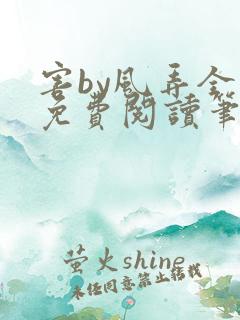 害by风弄全
免費閱讀筆
萤火shine
未经同意禁止转载